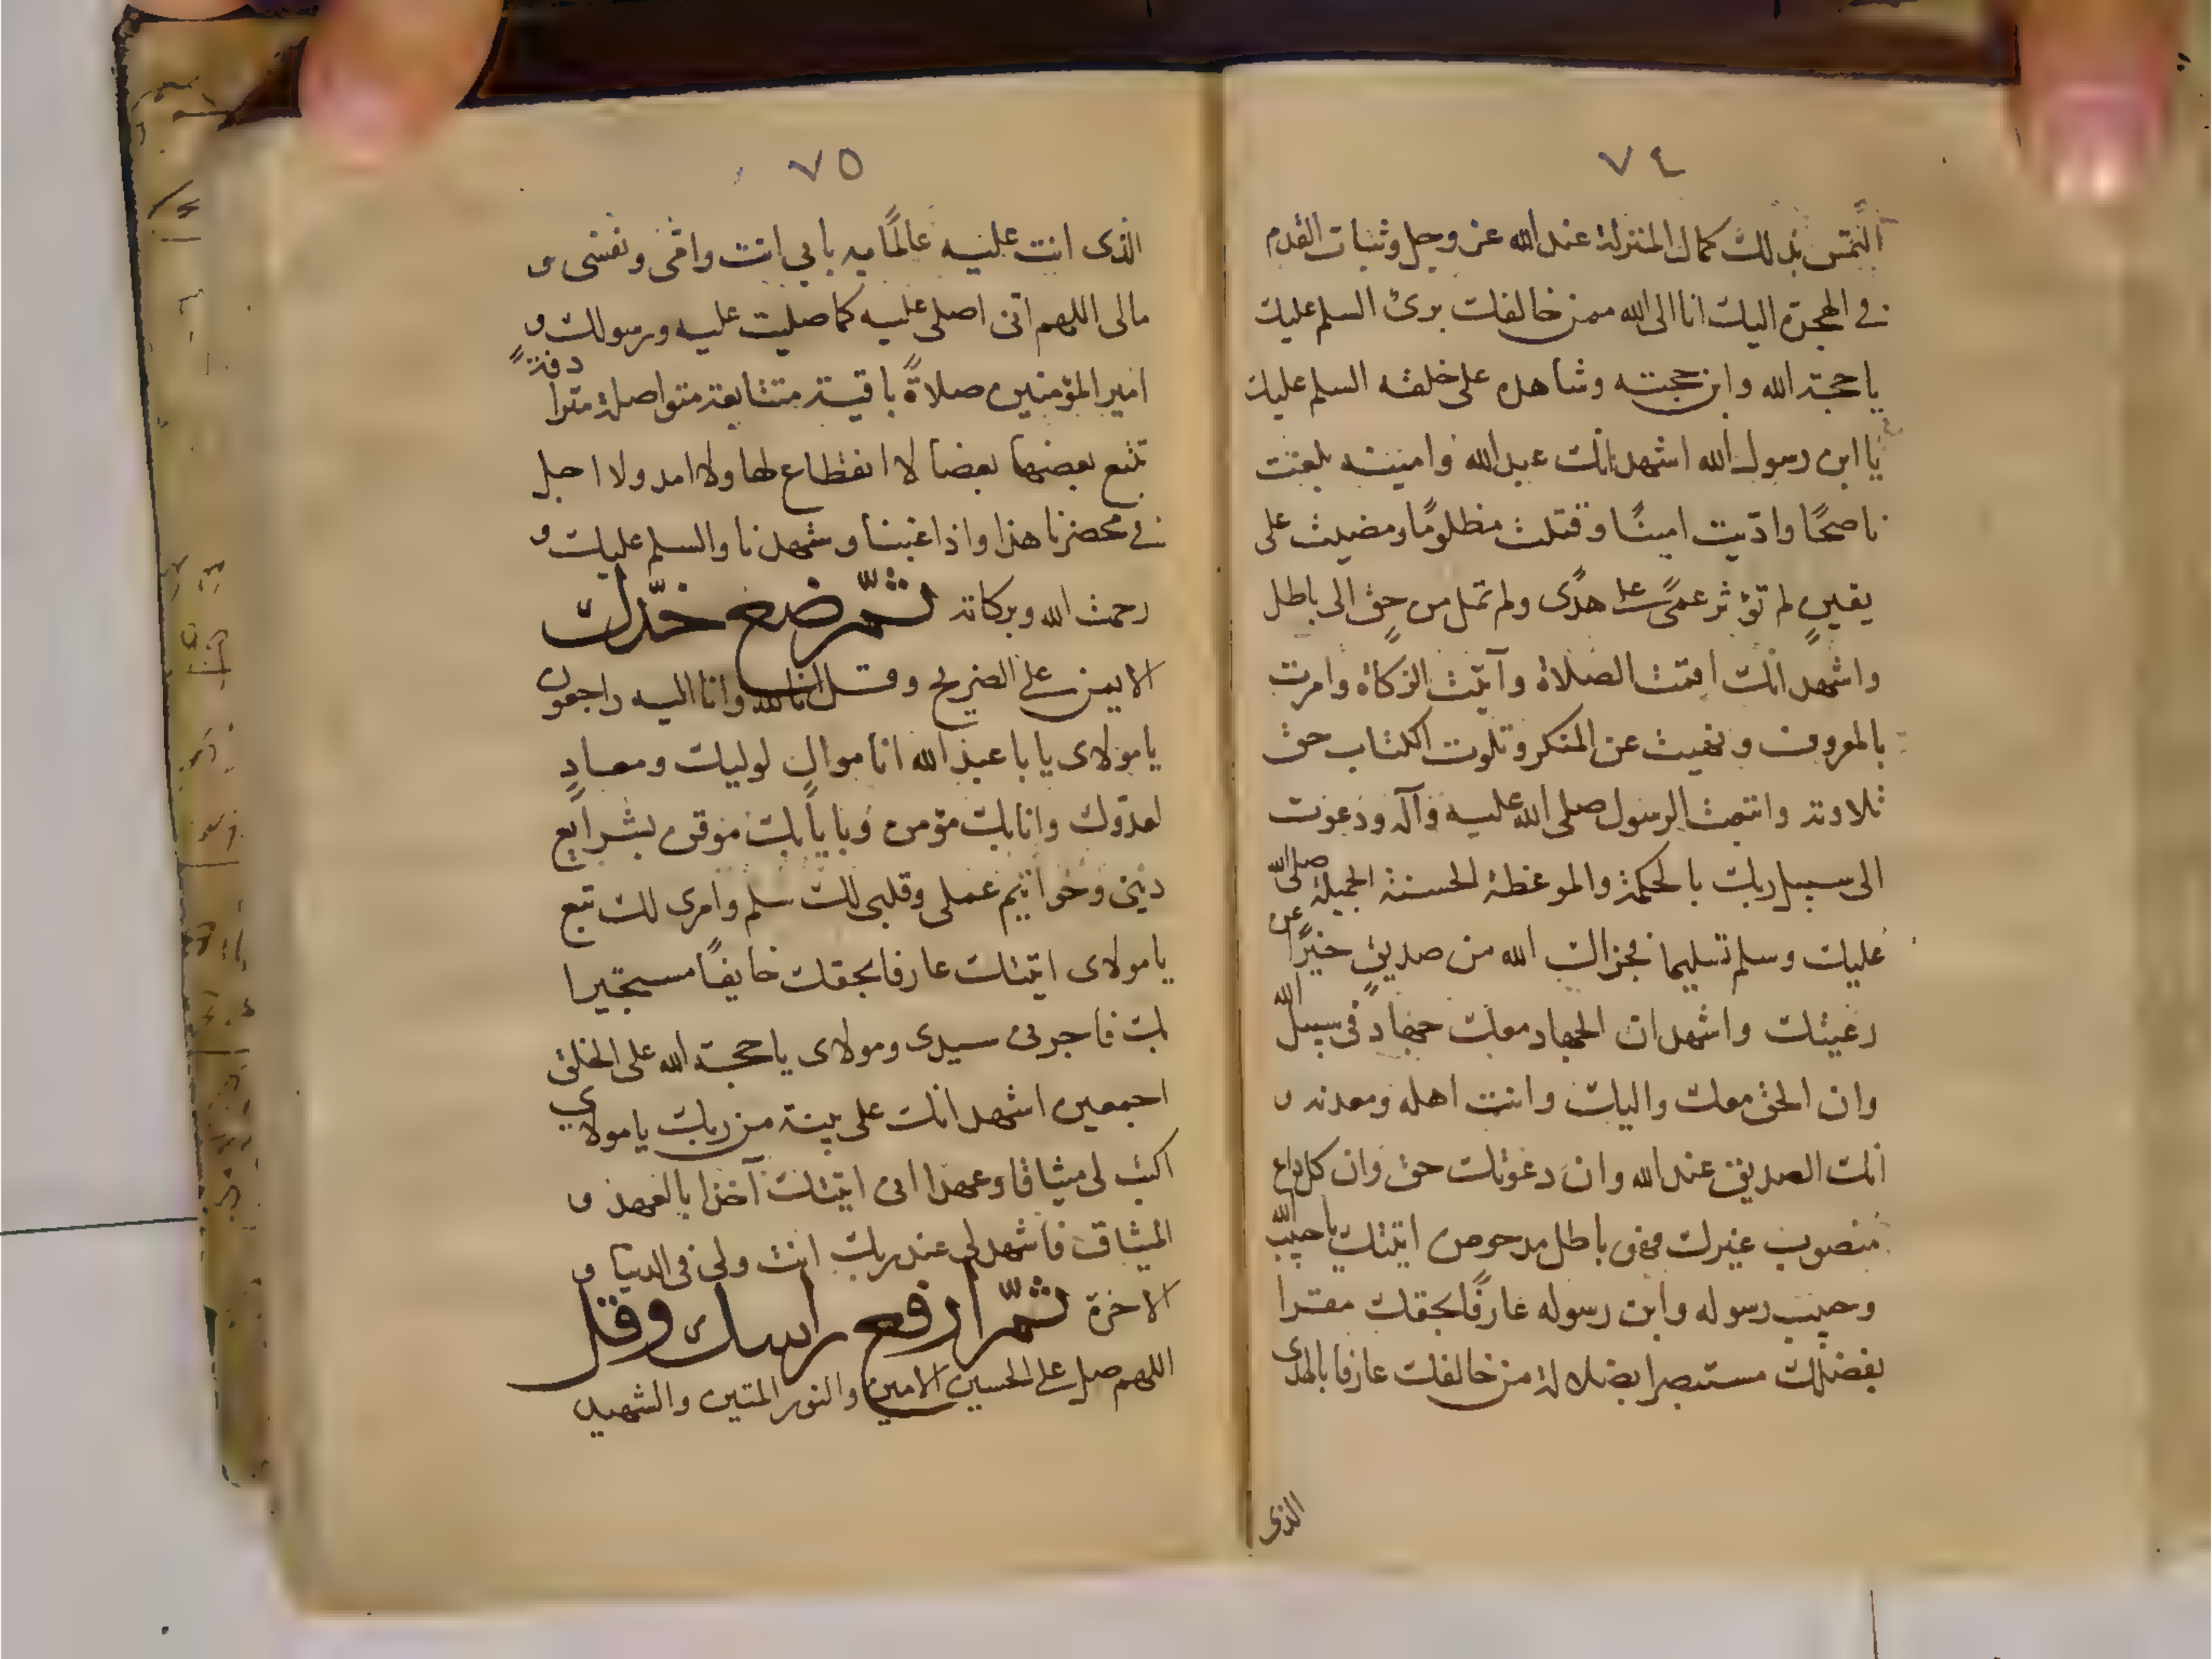 ٧٤
التمس بذلك كمال المنزلة عند الله عز وجل وثبات القدم
في الهجرة اليك انا الى الله ممن خالفك برئ السلم عليك
يا حجة الله وابن حجته وشاهده على خلقه السلم عليك
يا ابن رسول الله اشهد انك عبد الله وامينه بلغت
ناصحًا وادّيت امينًا وقتلت مظلومًا ومضيت على
يقينٍ لم تؤثر عمىً على هدًى ولم تمل من حقٍ الى باطل
واشهد انك اقمت الصلاة وآتيت الزكاة وامرت
بالمعروف ونهيت عن المنكر وتلوت الكتاب حق
تلاوته واتبعت الرسول صلى الله عليه وآله ودعوت
الى سبيل ربك بالحكمة والموعظة الحسنة الجميلة صلى الله
عليك وسلم تسليما فجزاك الله من صديقٍ خيرًا عن
رعيتك واشهد ان الجهاد معك جهاد في سبيل الله
وان الحق معك واليك وانت اهله ومعدنه و
انك الصديق عند الله وان دعوتك حق وان كل داع
منصوب غيرك فهو باطل مدحوض اتيتك يا حبيب الله
وحبيب رسوله وابن رسوله عارفًا بحقك مقرا
بفضلك مستبصرا بضلالة من خالفك عارفا بالهدى
الذي
٧٥
الذى انت عليه عالمًا به بابي انت وامّي ونفسى و
مالى اللهم انى اصلى عليه كما صليت عليه ورسولك و
امير المؤمنين صلاةً باقية متتابعة متواصلة مترادفةً
تتبع بعضها بعضا لا انقطاع لها ولا امد ولا اجل
في محضرنا هذا واذا غبنا وشهدنا والسلم عليك و
رحمت الله وبركاته ثمّ ضع خدّك
الايمن على الضريح وقل انا لله وانا اليه راجعون
يا مولاى يا با عبد الله انا موالٍ لوليك ومعادٍ
لعدوّك وانا بك مؤمن وبايابك موقن بشرايع
ديني وخواتيم عملى وقلبى لك سلم وامرى لك تبع
يا مولاى اتيتك عارفا بحقك خايفًا مستجيرا
بك فاجرنى سيدى ومولاى يا حجة الله على الخلق
اجمعين اشهد انك على بينة من ربك يا مولاي
اكتب لى ميثاقا وعهدا انى اتيتك آخذا بالعهد و
الميثاق فاشهد لى عند ربك انت وليى فى الدنيا و
الاخرة ثمّ ارفع راسك وقل
اللهم صل على الحسين الامين والنور المتين والشهيد